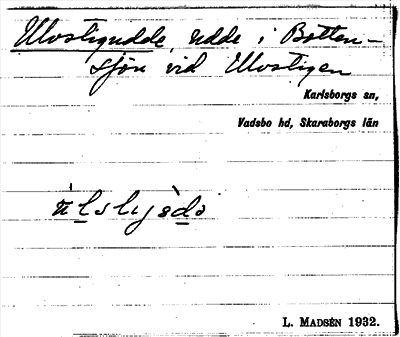 Ulvstigudde, udde i Botten-
sjön vid Ulvstigen
Karlsborgs sn,
Vadsbo hd, Skaraborgs län
L. MADSÉN 1932.